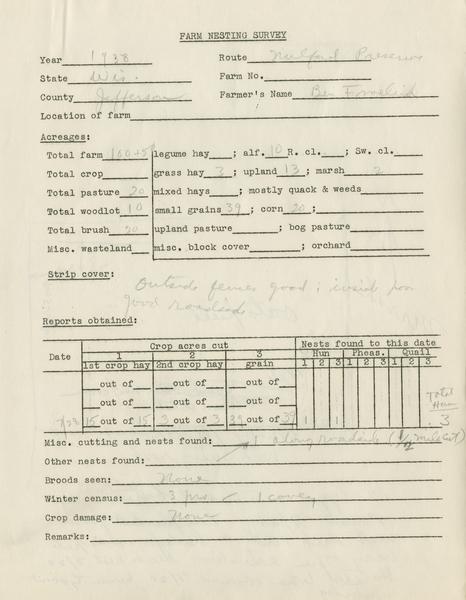 FARM NESTING SURVEY
Year 1938 Route Milford Preserve
State Wis. Farm No.
County Jefferson Farmer's Name Ben
Location of farm
Acreages:
Total farm 100+50 legume hay ; alf. 10 R. cl. ; Sw. cl.
Total crop grass hay 3 ; upland 13 ; marsh 2
Total pasture 20 mixed hays ; mostly quack & weeds
Total woodlot 10 small grains 39 ; corn 20 ;
Total brush 20 upland pasture ; bog pasture
Misc. wasteland misc. block cover ; orchard
Strip cover:
Outside fences good; inside poor
Good roadside
Reports obtained:
Crop acres cut Nests found to this date
Date 1 2 3 Hun Pheas. Quail
1st crop hay 2nd crop hay grain 1 2 3 1 2 3 1 2 3
out of out of out of
out of out of out of Total Hun
7/23 15 out of 15 3 out of 3 39 out of 39 1 1 3
Misc. cutting and nests found: 1 along roadside (1/2 mile cut)
Other nests found:
Broods seen: None
Winter census: 3 prs. 1 covey
Crop damage: None
Remarks: